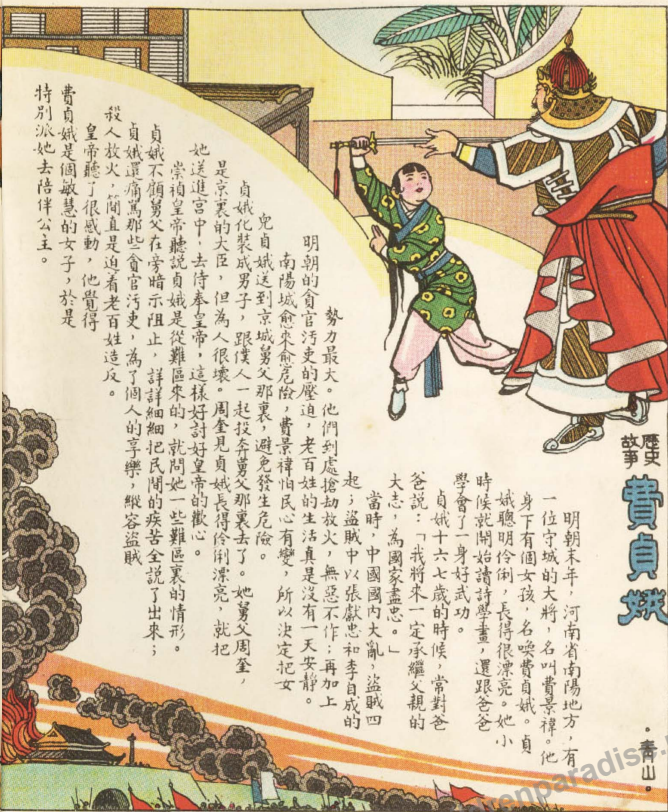 歷史
故事
費貞娥
·青山·
明朝末年，河南省南陽地方，有
一位守城的大將，名叫費景禕。他
身下有個女孩，名喚費貞娥。貞
娥聰明伶俐，長得很漂亮。她小
時候就開始讀詩學畫，還跟爸爸
學會了一身好武功。
貞娥十六七歲的時候，常對爸
爸說：「我將來一定承繼父親的
大志，為國家盡忠。」
當時，中國國內大亂，盜賊四
起；盜賊中以張獻忠和李自成的
勢力最大。他們到處搶劫放火，無惡不作；再加上
明朝的貪官汚吏的壓迫，老百姓的生活真是沒有一天安靜。
南陽城愈來愈危險，費景禕怕民心有變，所以決定把女
兒貞娥送到京城舅父那裏，避免發生危險。
貞娥化裝成男子，跟僕人一起投奔舅父那裏去了。她舅父周奎，
是京裏的大臣，但為人很壞。周奎見貞娥長得伶俐漂亮，就把
她送進宮中，去侍奉皇帝，這樣好討好皇帝的歡心。
崇禎皇帝聽說貞娥是從難區來的，就問她一些難區裏的情形。
貞娥不顧舅父在旁暗示阻止，詳詳細細把民間的疾苦全說了出來；
貞娥還痛罵那些貪官汚吏，為了個人的享樂，縱容盜賊
殺人放火，簡直是迫着老百姓造反。
皇帝聽了很感動，他覺得
費貞娥是個敏慧的女子，於是
特別派她去陪伴公主。